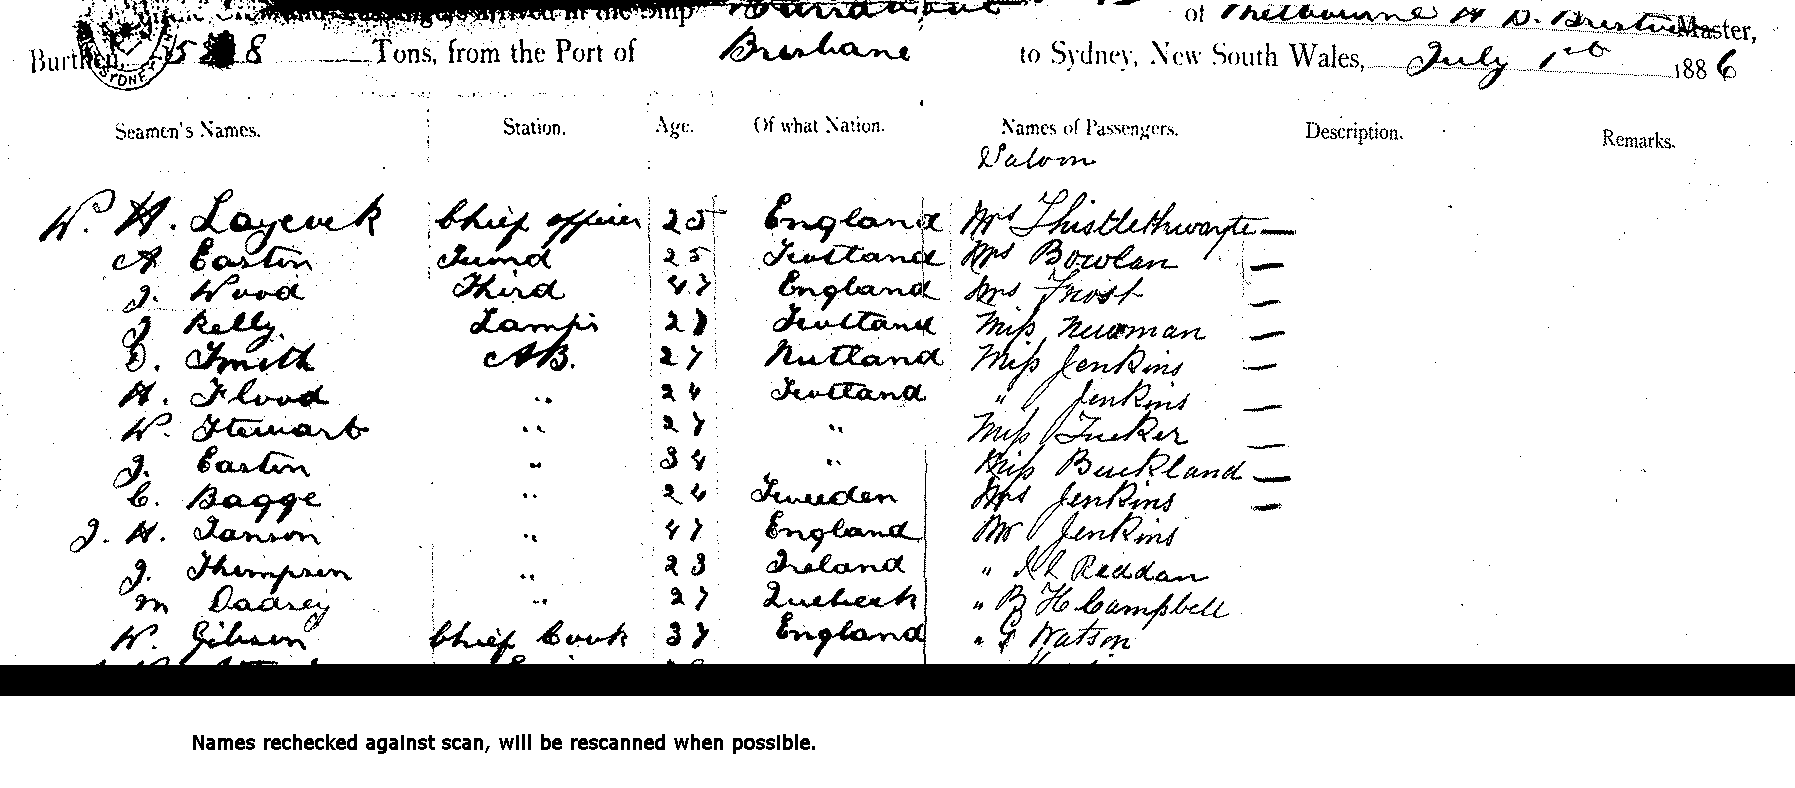 Crew and Passengers arrived in the Ship of Melbourne Master,
Burthen 8 Tons, from the Port of Brisbane to Sydney, New South Wales, July 1st 1886
Seamen's Names. Station. Age. Of what Nation. Names of Passengers. Description. Remarks.
Saloon
W. H. Laycock Chief officer 25 England Mrs Thistlethwayte —
A Easton Second 25 Scotland Mrs Bowlan —
J. Wood Third 47 England Mrs Frost —
J Kelly. Lamps 27 Scotland Miss Newman —
D. Smith AB. 27 Rutland Miss Jenkins —
H. Flood " 24 Scotland " Jenkins —
W. Stewart " 27 " Miss Tucker —
J. Easton " 34 " Miss Buckland —
C. Bagge " 24 Sweeden Mrs Jenkins —
J. H. Janson " 47 England Mr Jenkins
J. Thompson " 23 Ireland " Reddan
M Dadsey " 27 Quebeck " B H Campbell
W. Gibson Chief Cook 37 England " G Watson
Names rechecked against scan, will be rescanned when possible.